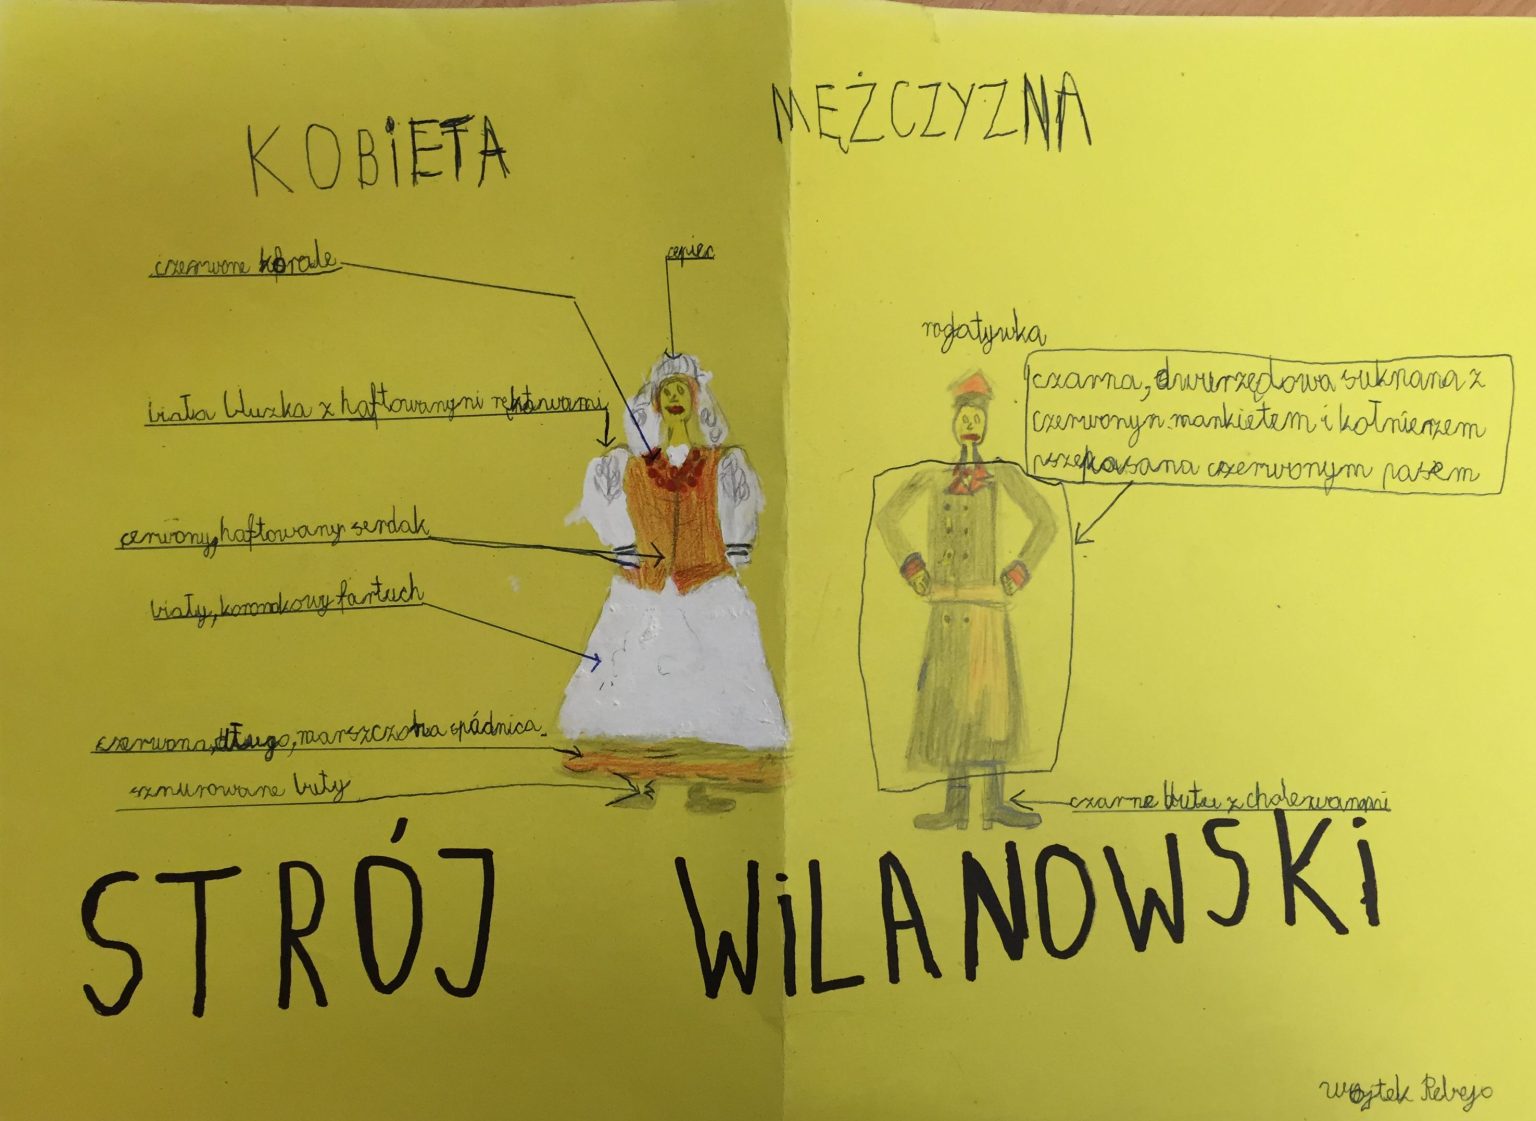 KOBiETA
MĘŻCZYZNA
czerwone korale
czepiec
biała bluzka z haftowanymi rękawami
cerwony, haftowany serdak
biały, koronkowy fartuch
czerwona, długa, marszczona spódnica
sznurowane buty
rogatywka
czarna, dwurzędowa sukmana z
czerwonym mankietem i kołnierzem
pszepasana czerwonym pasem
czarne buty z cholewami
STRÓJ WiLANOWSKi
Wojtek Rebejo